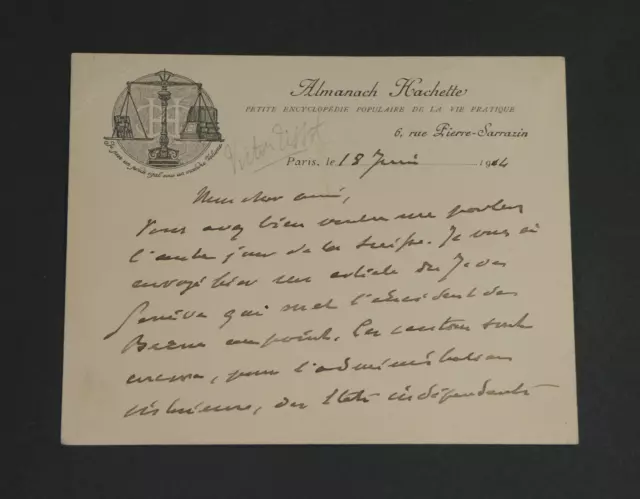 Almanach Hachette
PETITE ENCYCLOPÉDIE POPULAIRE DE LA VIE PRATIQUE
6, rue Pierre-Sarrazin
Victor Tissot
Paris, le 18 Juin 1914
Mon cher ami,
Vous avez bien voulu me parler
l'autre jour de la Suisse. Je vous ai
envoyé hier un article du J. de
Genève qui met l'incident de
Berne au point. Les cantons sont
encore, pour l'administration
intérieure, des Etats indépendants